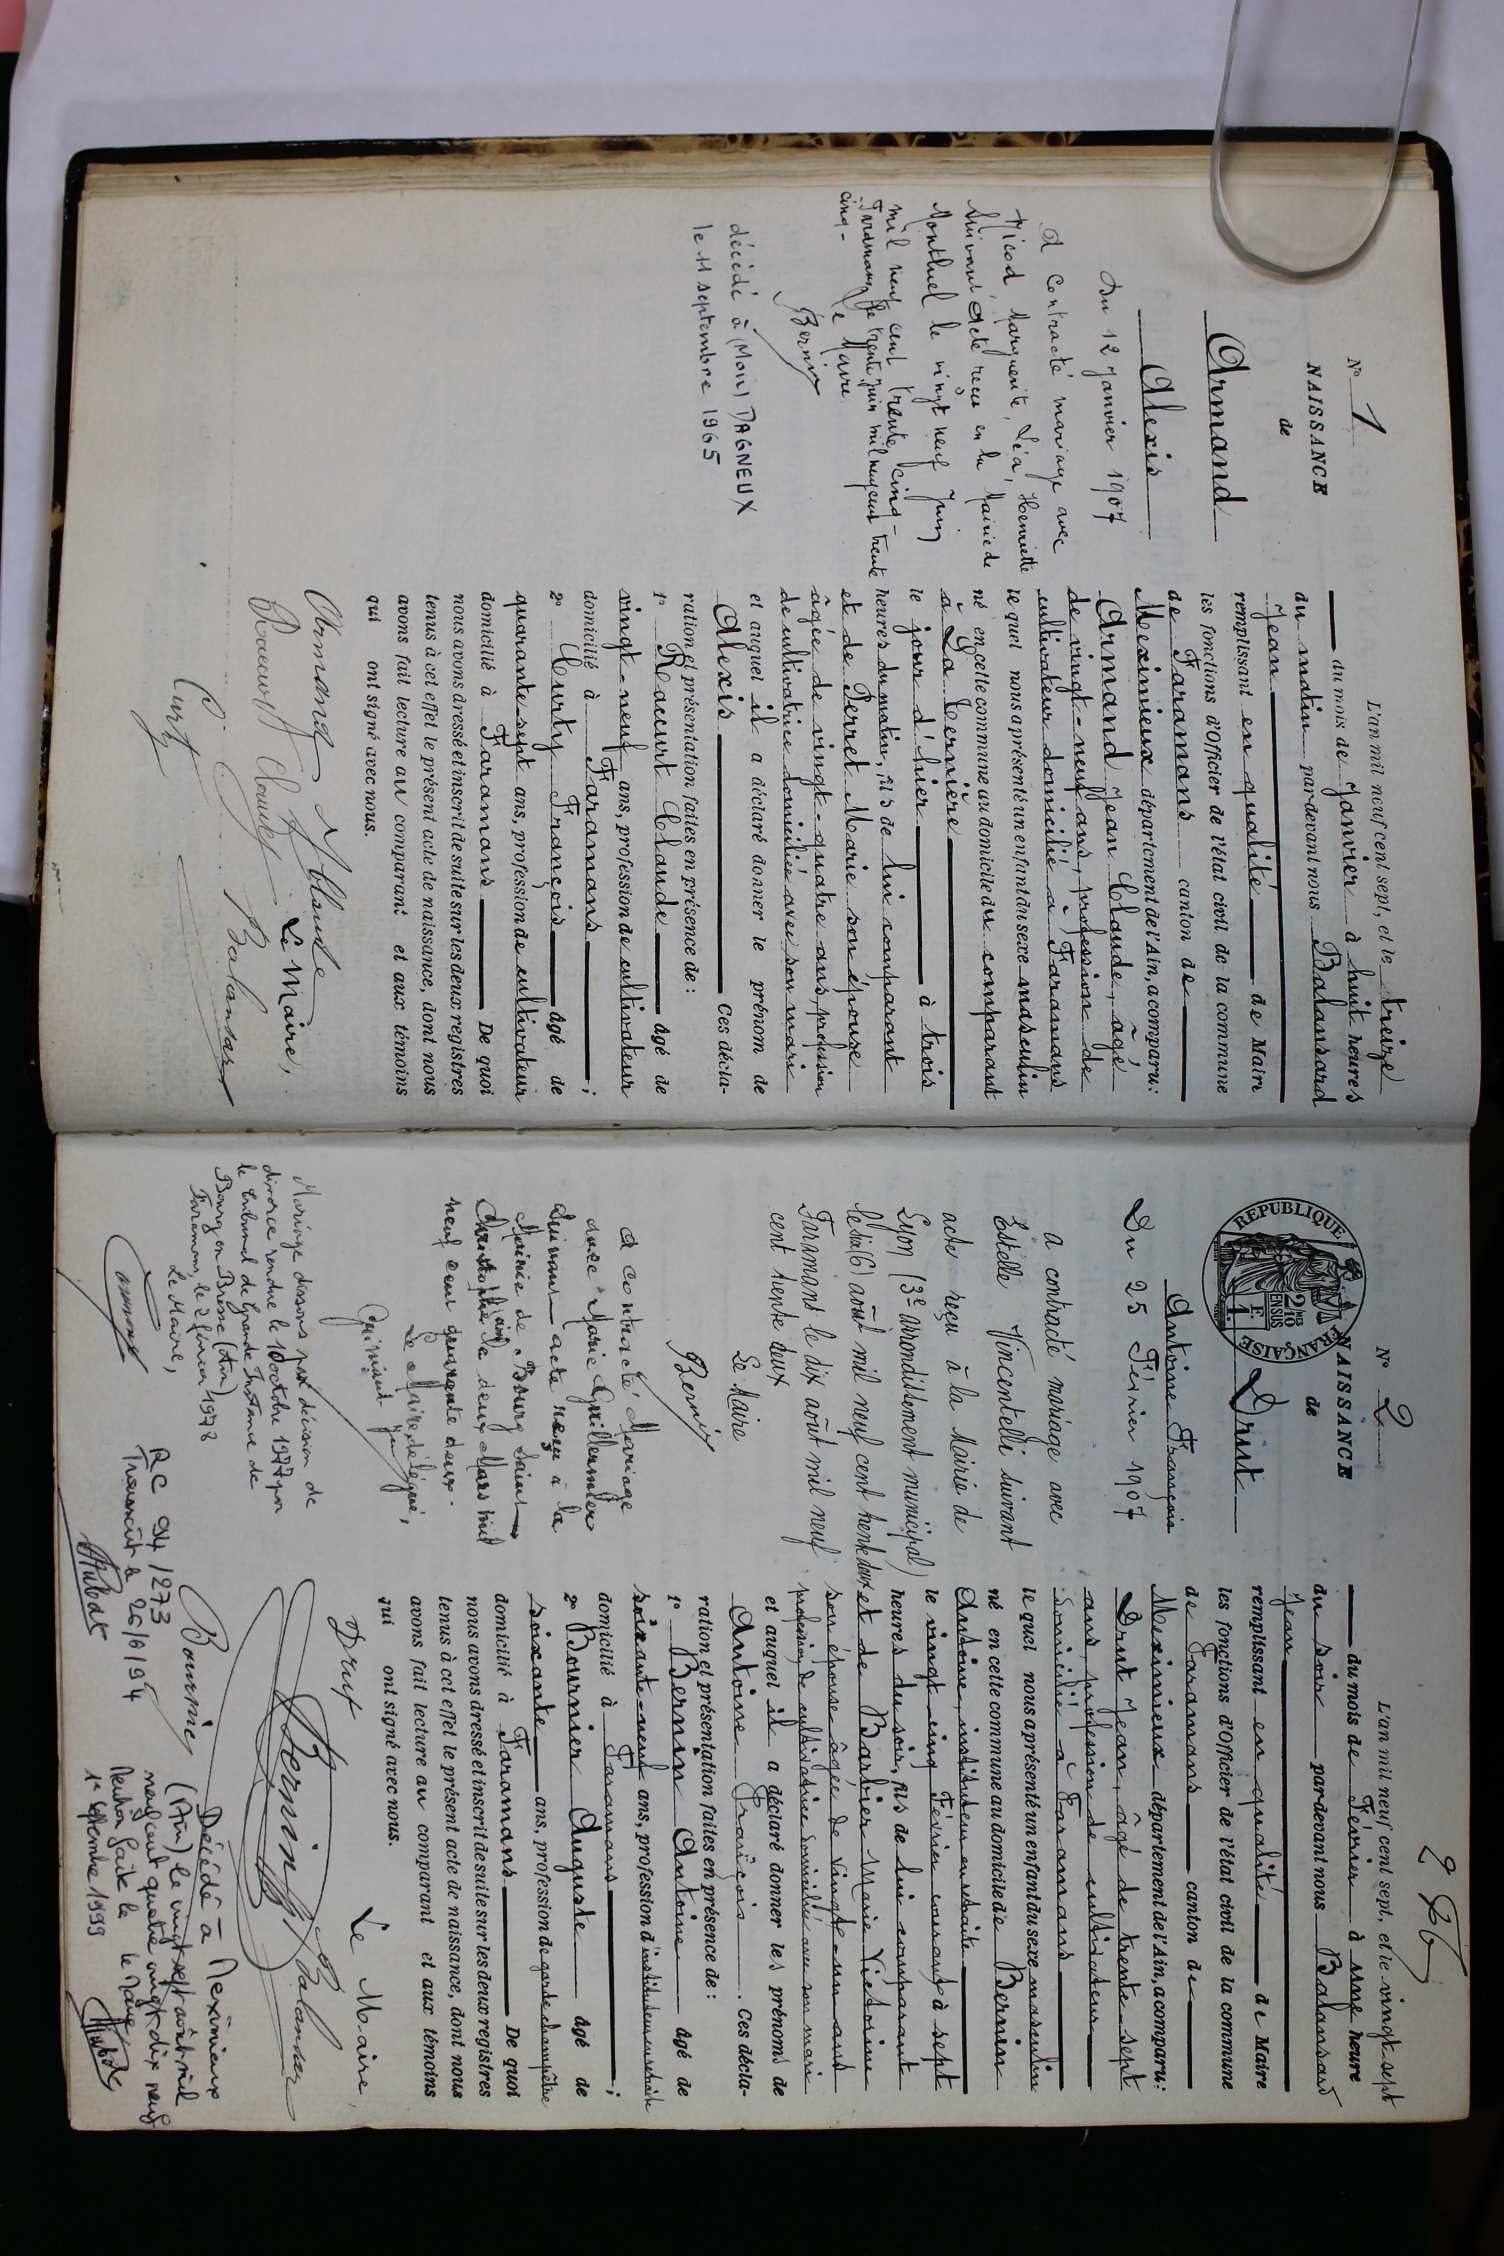 N° 1
NAISSANCE
de
Armand
Alexis
Du 12 Janvier 1907
A contracté mariage avec
Nicod, Marguerite, Léa, Henriette
suivant acte reçu en la Mairie de
Montluel le vingt neuf Juin
mil neuf cent trente cinq -
Faramans le trente juin mil neuf cent trente
cinq - Le Maire
Bernin
décédé à (Mon) DAGNEUX
le 11 septembre 1965
L'an mil neuf cent sept, et le treize
du mois de Janvier à huit heures
du matin par-devant nous Balansard
Jean
remplissant en qualité de Maire
les fonctions d'Officier de l'état civil de la commune
de Faramans canton de
Meximieux département de l'Ain, a comparu:
Armand Jean Claude, âgé
de vingt-neuf ans, profession de
cultivateur domicilié à Faramans
lequel nous a présenté un enfant du sexe masculin
né en cette commune au domicile du comparant
à La Cernière
le jour d'hier à trois
heures du matin, fils de lui comparant
et de Perret Marie son épouse
âgée de vingt-quatre ans, profession
de cultivatrice domiciliée avec son mari
et auquel il a déclaré donner le prénom de
Alexis Ces décla-
ration et présentation faites en présence de :
1° Racurt Claude âgé de
vingt-neuf ans, profession de cultivateur
domicilié à Faramans ;
2° Curty François âgé de
quarante sept ans, profession de cultivateur
domicilié à Faramans De quoi
nous avons dressé et inscrit de suite sur les deux registres
tenus à cet effet le présent acte de naissance, dont nous
avons fait lecture au comparant et aux témoins
qui ont signé avec nous.
Armand Claude Le Maire,
Racurt Claude Balansard
Curty
N° 2
NAISSANCE
de
REPUBLIQUE FRANÇAISE
2/10MES EN SUS
1 F.
Drut
Antoine François
Du 25 Février 1907
A contracté mariage avec
Estelle Vincentelli suivant
acte reçu à la Mairie de
Lyon (3e arrondissement municipal)
le six (6) août mil neuf cent trente deux
Faramans le dix août mil neuf
cent trente deux
Le Maire
Bernin
A contracté Mariage
avec Marie Guillermier
suivant acte reçu à la
Mairie de Bourg Saint
Christophe le deux Mars mil
neuf cent quarante deux.
Le Maire délégué,
Mariage dissous par décision de
divorce rendue le 10 octobre 1977 par
le tribunal de Grande Instance de
Bourg en Bresse (Ain)
Faramans, le 2 février 1978
Le Maire,
RC 94/273
Transcrit le 20/6/94
2
L'an mil neuf cent sept, et le vingt-sept
du mois de Février à une heure
du soir par-devant nous Balansard
Jean
remplissant en qualité de Maire
les fonctions d'Officier de l'état civil de la commune
de Faramans canton de
Meximieux département de l'Ain, a comparu:
Drut Jean, âgé de trente-sept
ans, profession de cultivateur
domicilié à Faramans
lequel nous a présenté un enfant du sexe masculin
né en cette commune au domicile de Bernin
Antoine, instituteur en retraite
le vingt cinq Février courant à sept
heures du soir, fils de lui comparant
et de Barbier Marie Victorine
son épouse âgée de vingt-un ans
profession de cultivatrice domiciliée avec son mari
et auquel il a déclaré donner les prénoms de
Antoine François Ces décla-
ration et présentation faites en présence de :
1° Bernin Antoine âgé de
soixante-neuf ans, profession d'instituteur en retraite
domicilié à Faramans ;
2° Bournier Auguste âgé de
soixante ans, profession de garde champêtre
domicilié à Faramans De quoi
nous avons dressé et inscrit de suite sur les deux registres
tenus à cet effet le présent acte de naissance, dont nous
avons fait lecture au comparant et aux témoins
qui ont signé avec nous.
Drut Le Maire,
Bernin Balansard
Bournier
Décédé à Meximieux
(Ain) le vingt sept août mil
neuf cent quatre vingt dix neuf
Mention faite le
1er Septembre 1999
le Maire